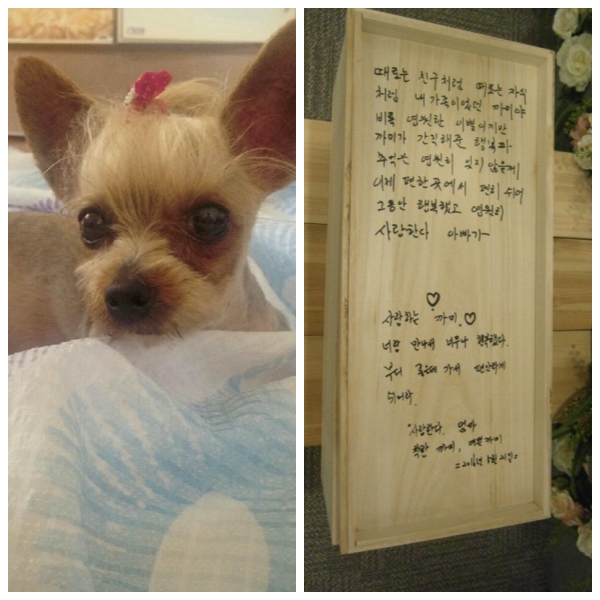 때로는 친구처럼 때로는 자식
처럼 내 가족이었던 까미야
비록 영원한 이별이지만
까미가 간직해준 행복과
추억은 영원히 잊지 않을께
이제 편한 곳에서 편히 쉬어
그동안 행복했고 영원히
사랑한다 아빠가
사랑하는 까미.
너랑 만나서 너무나 행복했다.
부디 좋은데 가서 편안하게
쉬어라.
사랑한다. 엄마
착한 까미, 예쁜까미